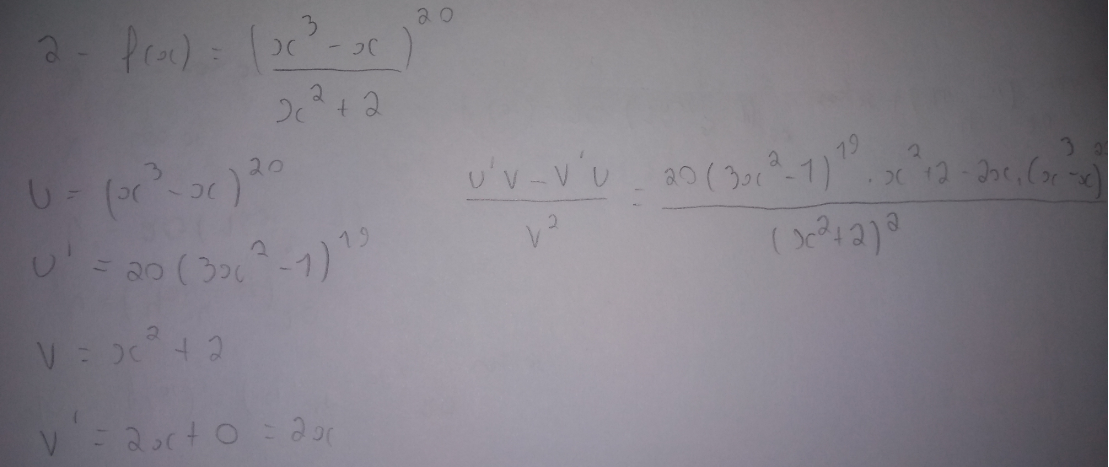 2 - f(x) = (x³ - x / x² + 2)²⁰
U = (x³ - x)²⁰
U' = 20(3x² - 1)¹⁹
V = x² + 2
V' = 2x + 0 = 2x
U'V - V'U / V² = 20(3x² - 1)¹⁹ . x² + 2 - 2x . (x³ - x)²⁰ / (x² + 2)²